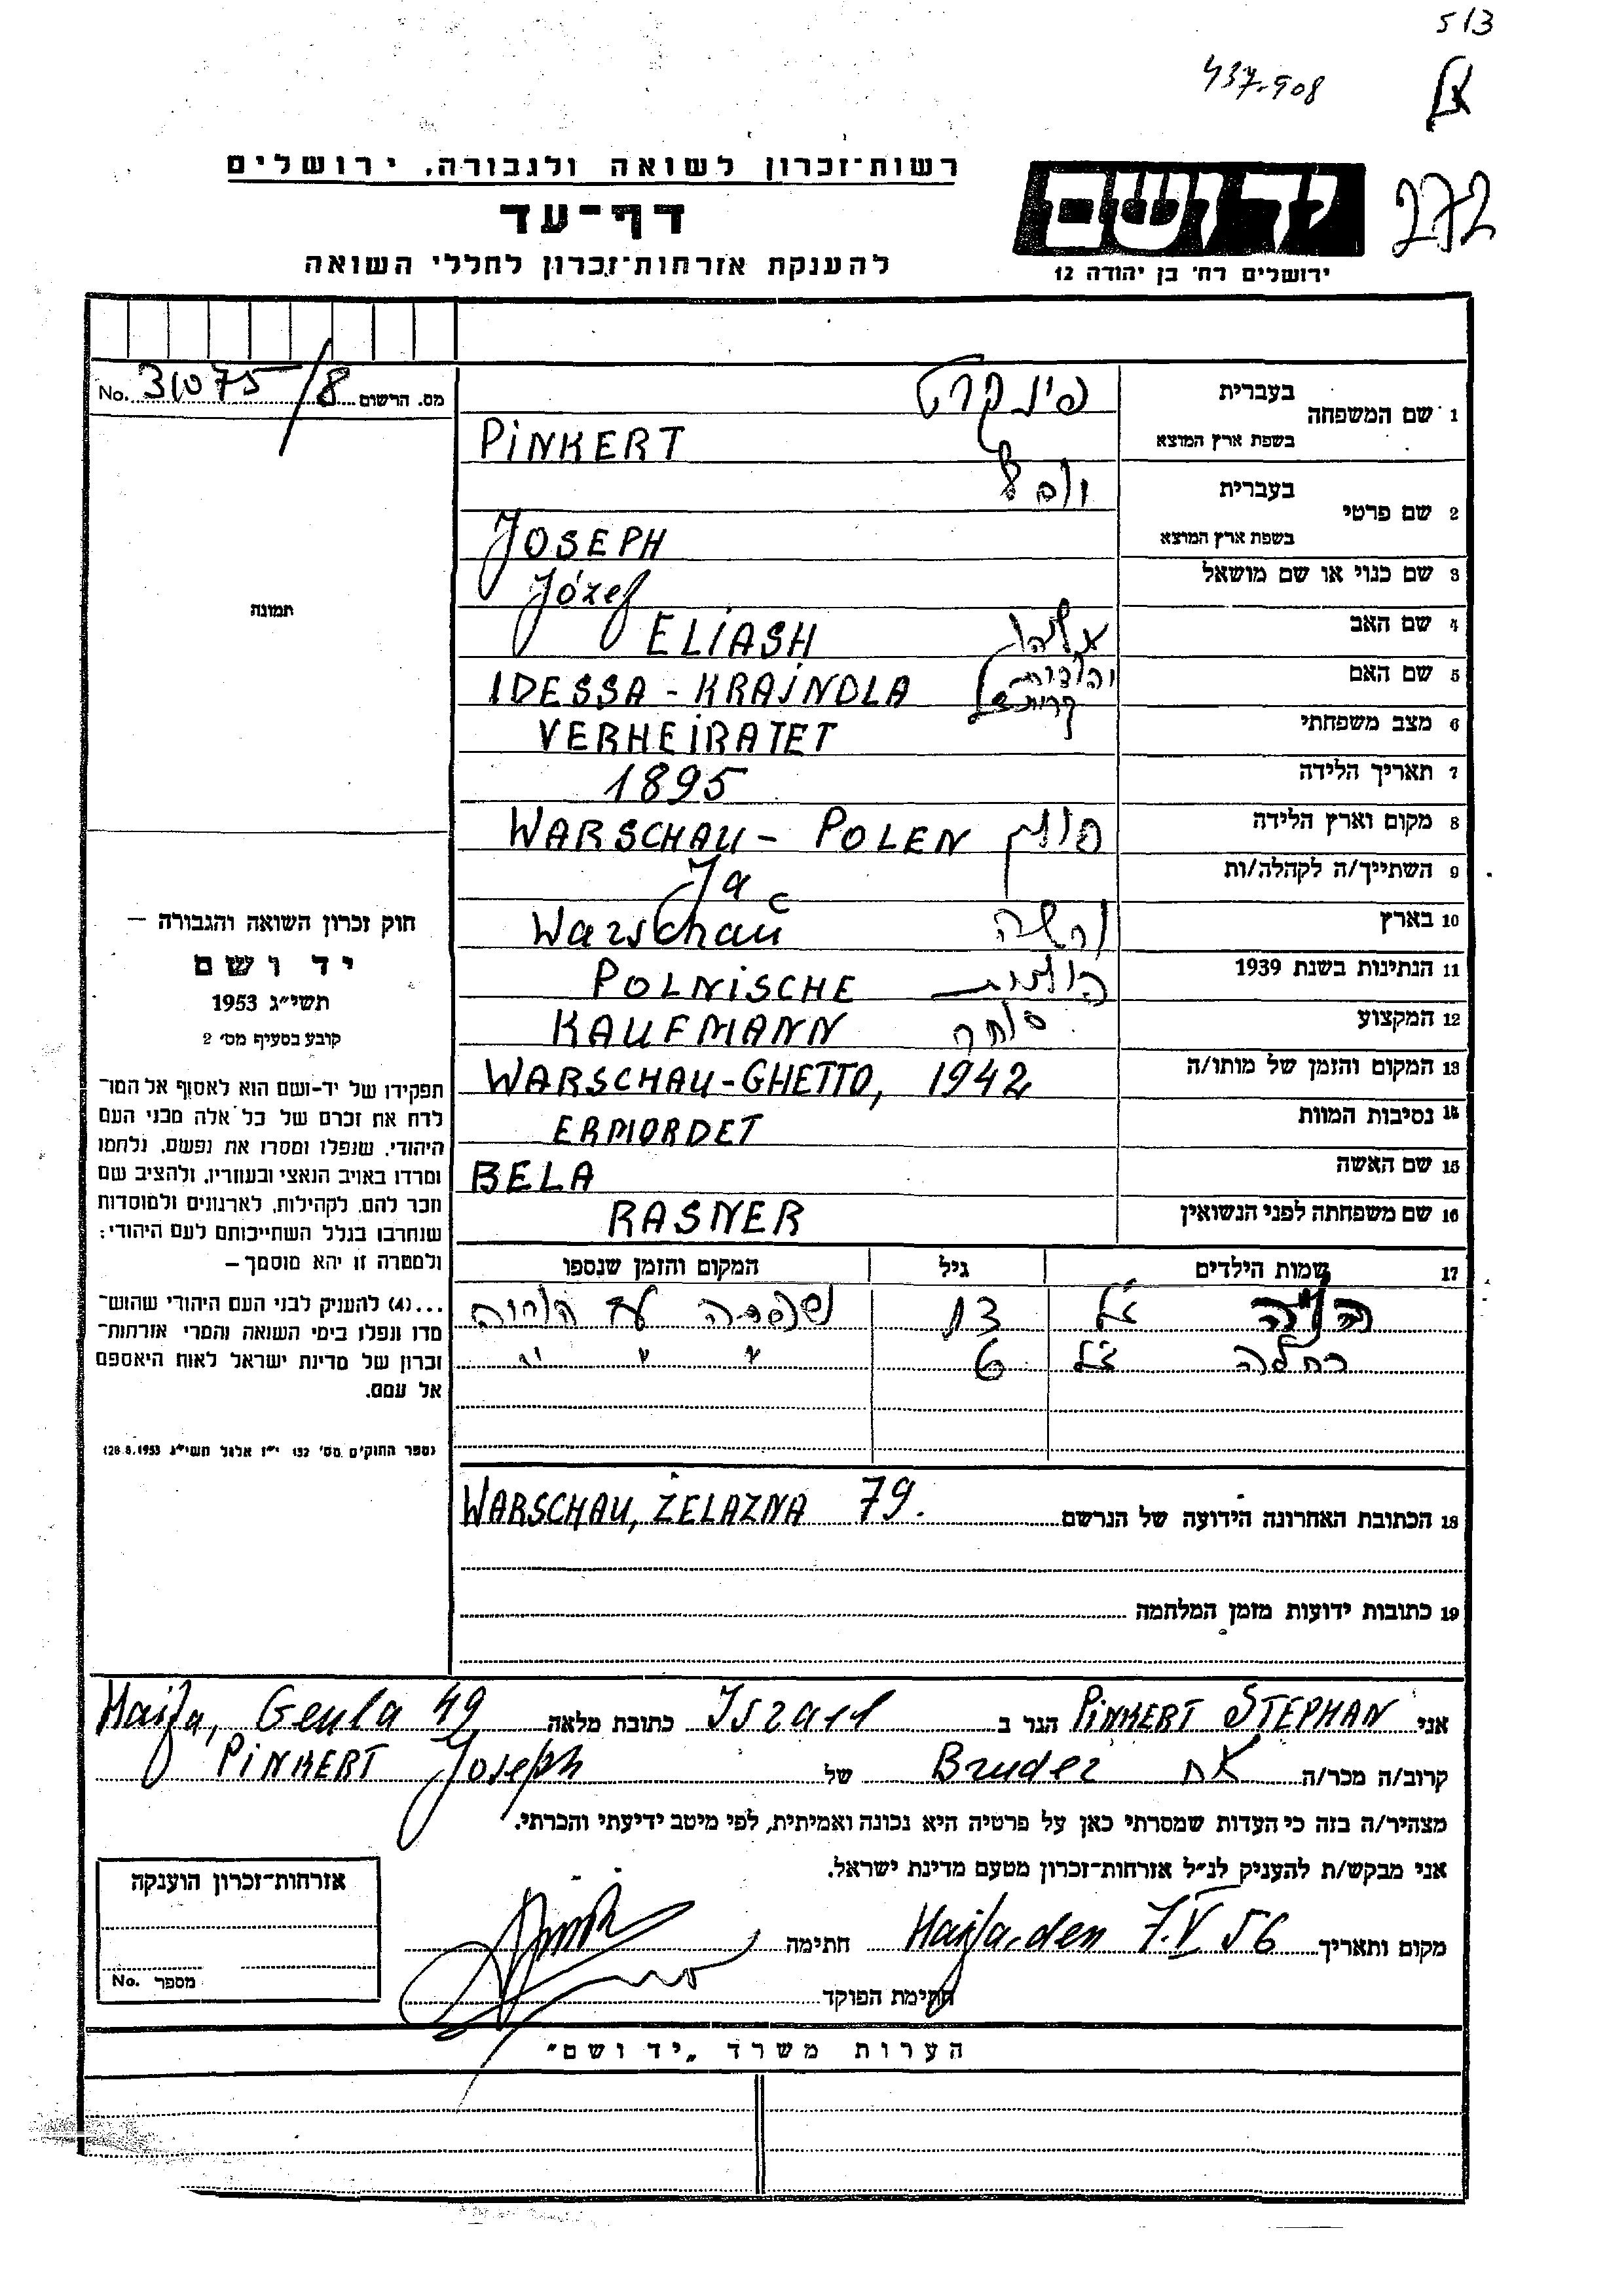 513
437.908
272
רשות־זכרון לשואה ולגבורה, ירושלים
דף־עד
להענקת אזרחות־זכרון לחללי השואה
יד ושם
ירושלים רח׳ בן יהודה 12
מס. הרשום 31075/8 No.
1 שם המשפחה
בעברית פינקרט
בשפת ארץ המוצא PINKERT
2 שם פרטי
בעברית
בשפת ארץ המוצא JOSEPH
3 שם כנוי או שם מושאל Józef
4 שם האב אליהו ELIASH
5 שם האם IDESSA - KRAJNDLA
6 מצב משפחתי VERHEIRATET
7 תאריך הלידה 1895
8 מקום וארץ הלידה פולין WARSCHAU - POLEN
9 השתייך/ה לקהלה/ות Ja
10 בארץ ורשה Warschau
11 הנתינות בשנת 1939 פולנית POLNISCHE
12 המקצוע סוחר KAUFMANN
13 המקום והזמן של מותו/ה WARSCHAU-GHETTO, 1942
14 נסיבות המוות ERMORDET
15 שם האשה BELA
16 שם משפחתה לפני הנשואין RASNER
17 שמות הילדים גיל המקום והזמן שנספו
ז״ל 13 שנספרה עם
רחלה ז״ל 6 " " "
18 הכתובת האחרונה הידועה של הנרשם WARSCHAU, ŻELAZNA 79.
19 כתובות ידועות מזמן המלחמה
תמונה
חוק זכרון השואה והגבורה —
יד ושם
תשי״ג 1953
קובע בסעיף מס׳ 2
תפקידו של יד-ושם הוא לאסוף אל המו־
לדת את זכרם של כל אלה מבני העם
היהודי, שנפלו ומסרו את נפשם, נלחמו
ומרדו באויב הנאצי ובעוזריו, ולהציב שם
וזכר להם, לקהילות, לארגונים ולמוסדות
שנחרבו בגלל השתייכותם לעם היהודי;
ולמטרה זו יהא מוסמך —
...(4) להעניק לבני העם היהודי שהוש־
מדו ונפלו בימי השואה והמרי אזרחות־
זכרון של מדינת ישראל לאות היאספם
אל עמם.
(ספר החוקים מס׳ 132 י״ז אלול תשי״ג 28.8.1953)
אני PINKERT STEPHAN הגר ב Iszael כתובת מלאה Haifa, Geula 49
קרוב/ה מכר/ה אח Bruder של PINKERT Joseph
מצהיר/ה בזה כי העדות שמסרתי כאן על פרטיה היא נכונה ואמיתית, לפי מיטב ידיעתי והכרתי.
אני מבקש/ת להעניק לנ״ל אזרחות-זכרון מטעם מדינת ישראל.
מקום ותאריך Haifa, den 7.V 56 חתימה
חתימת הפוקד
אזרחות-זכרון הוענקה
מספר No.
הערות משרד „יד ושם״